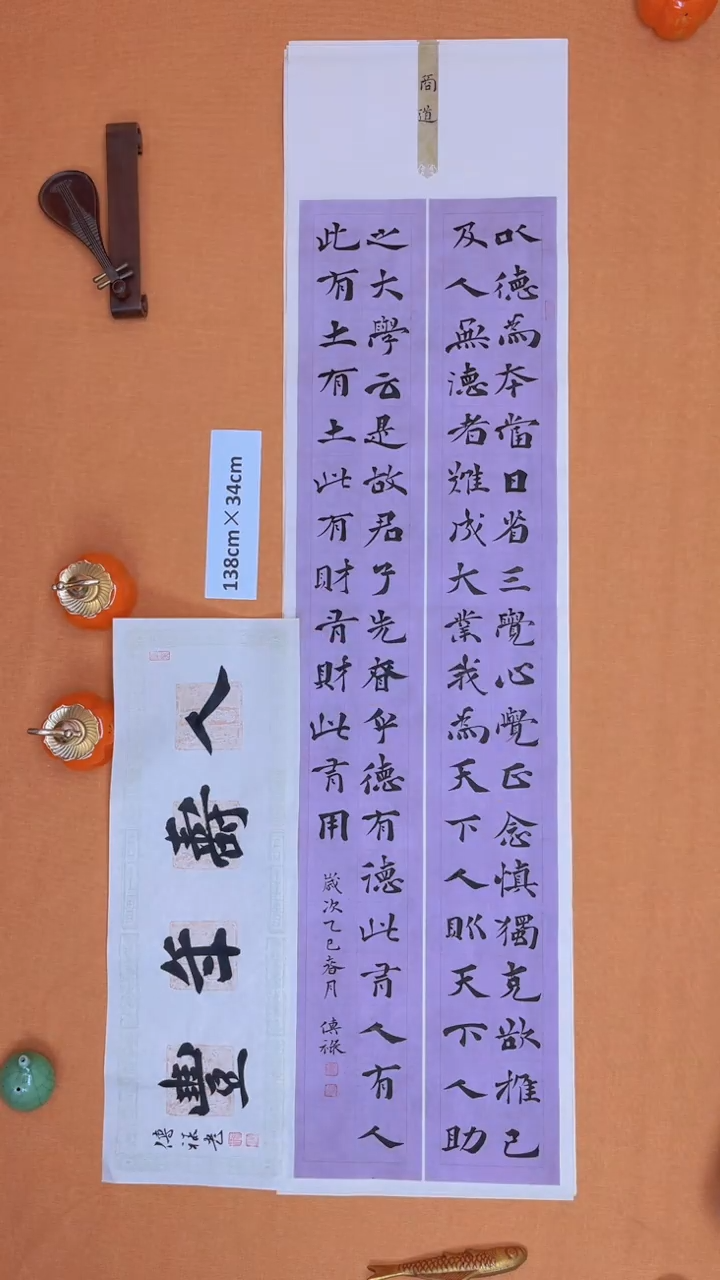 商道
以德為本當日省三覺心覺正念慎獨克欲推己
及人無德者難成大業我為天下人天下人助
之大學云是故君子先昚乎德有德此有人有人
此有土有土此有財有財此有用
歲次乙巳春月 傅祿
138cm×34cm
人壽年豐
傅祿